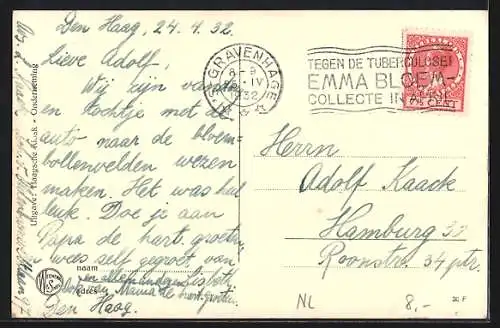 Den Haag, 24.4.32.
Lieve Adolf,
Wij zijn vandaag
en tochtje met de
auto naar de bloem-
bollenvelden wezen
maken. Het was heel
leuk. Doe je aan
Papa de hart. groeten
en wees self gegroet, van
en allen anderen Lisbeth
ook van Mama de hart. groeten
Den Haag.
naam
adres
Uitgave: Haagsche Kiosk - Onderneming
'S GRAVENHAGE
IV
1932
TEGEN DE TUBERCULOSE!
EMMA BLOEM-
COLLECTE IN APRIL
CENT
Herrn
Adolf Kaack
Hamburg 33
Roonstr. 34 ptr.
NL
8,-
30 F